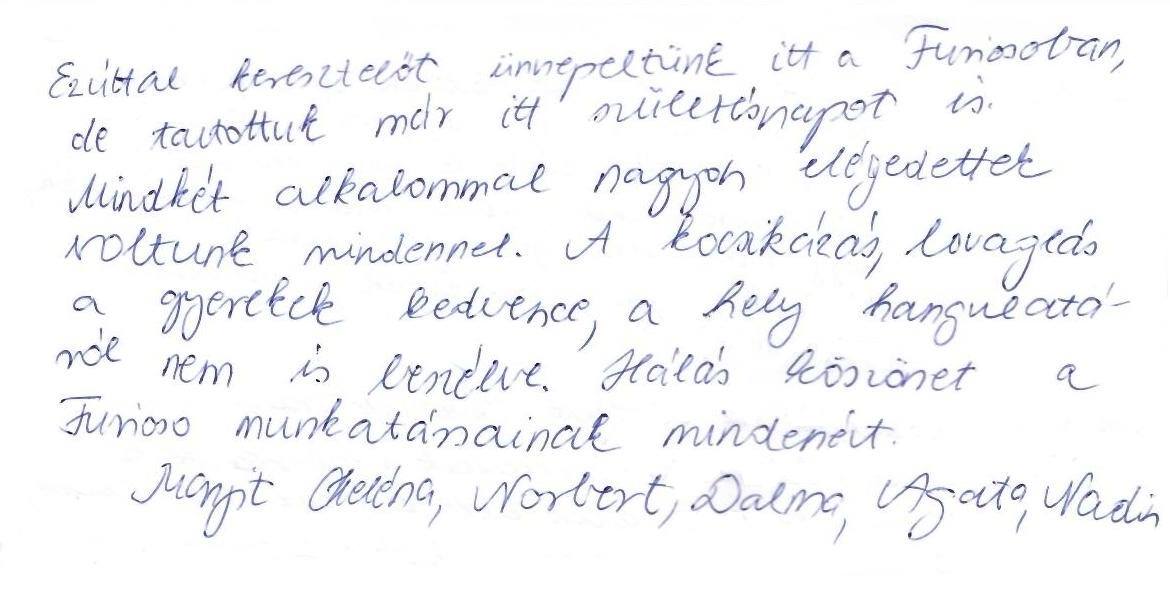 Ezúttal keresztelőt ünnepeltünk itt a Furiosoban,
de tartottuk már itt születésnapot is.
Mindkét alkalommal nagyon elégedettek
voltunk mindennel. A kocsikázás, lovaglás
a gyerekek kedvence, a hely hangulatá-
ról nem is beszélve. Hálás köszönet a
Furioso munkatársainak mindenért.
Margit Heléna, Norbert, Dalma, Agata, Nadin